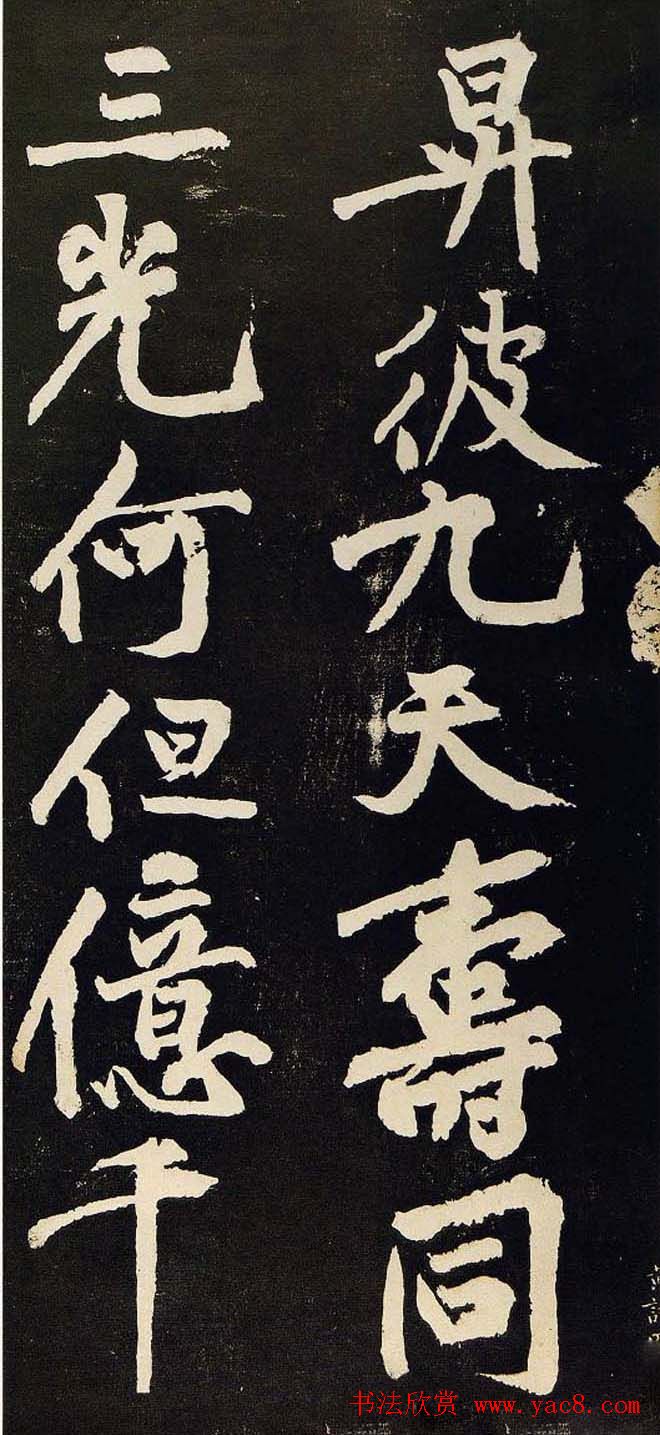 昇彼九天壽同
三光何但億千
书法欣赏 www.yac8.com